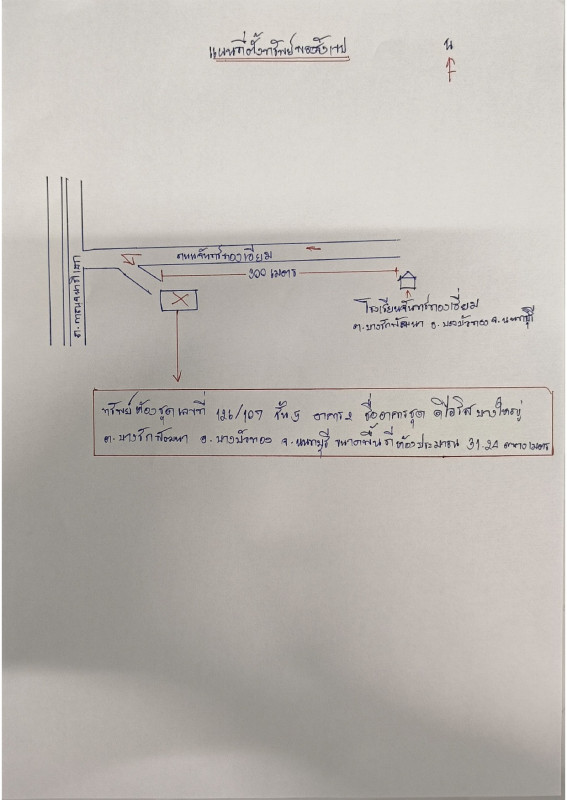 แผนที่ตั้งทรัพย์พอสังเขป
น
ถ.กาญจนาภิเษก
ถนนจันทร์ทองเอี่ยม
300 เมตร
โรงเรียนจันทร์ทองเอี่ยม
ต.บางรักพัฒนา อ.บางบัวทอง จ.นนทบุรี
ทรัพย์ ห้องชุด เลขที่ 126/107 ชั้น 5 อาคาร 2 ชื่ออาคารชุด ดิไอริส บางใหญ่
ต.บางรักพัฒนา อ.บางบัวทอง จ.นนทบุรี ขนาดพื้นที่ห้องประมาณ 31.24 ตารางเมตร